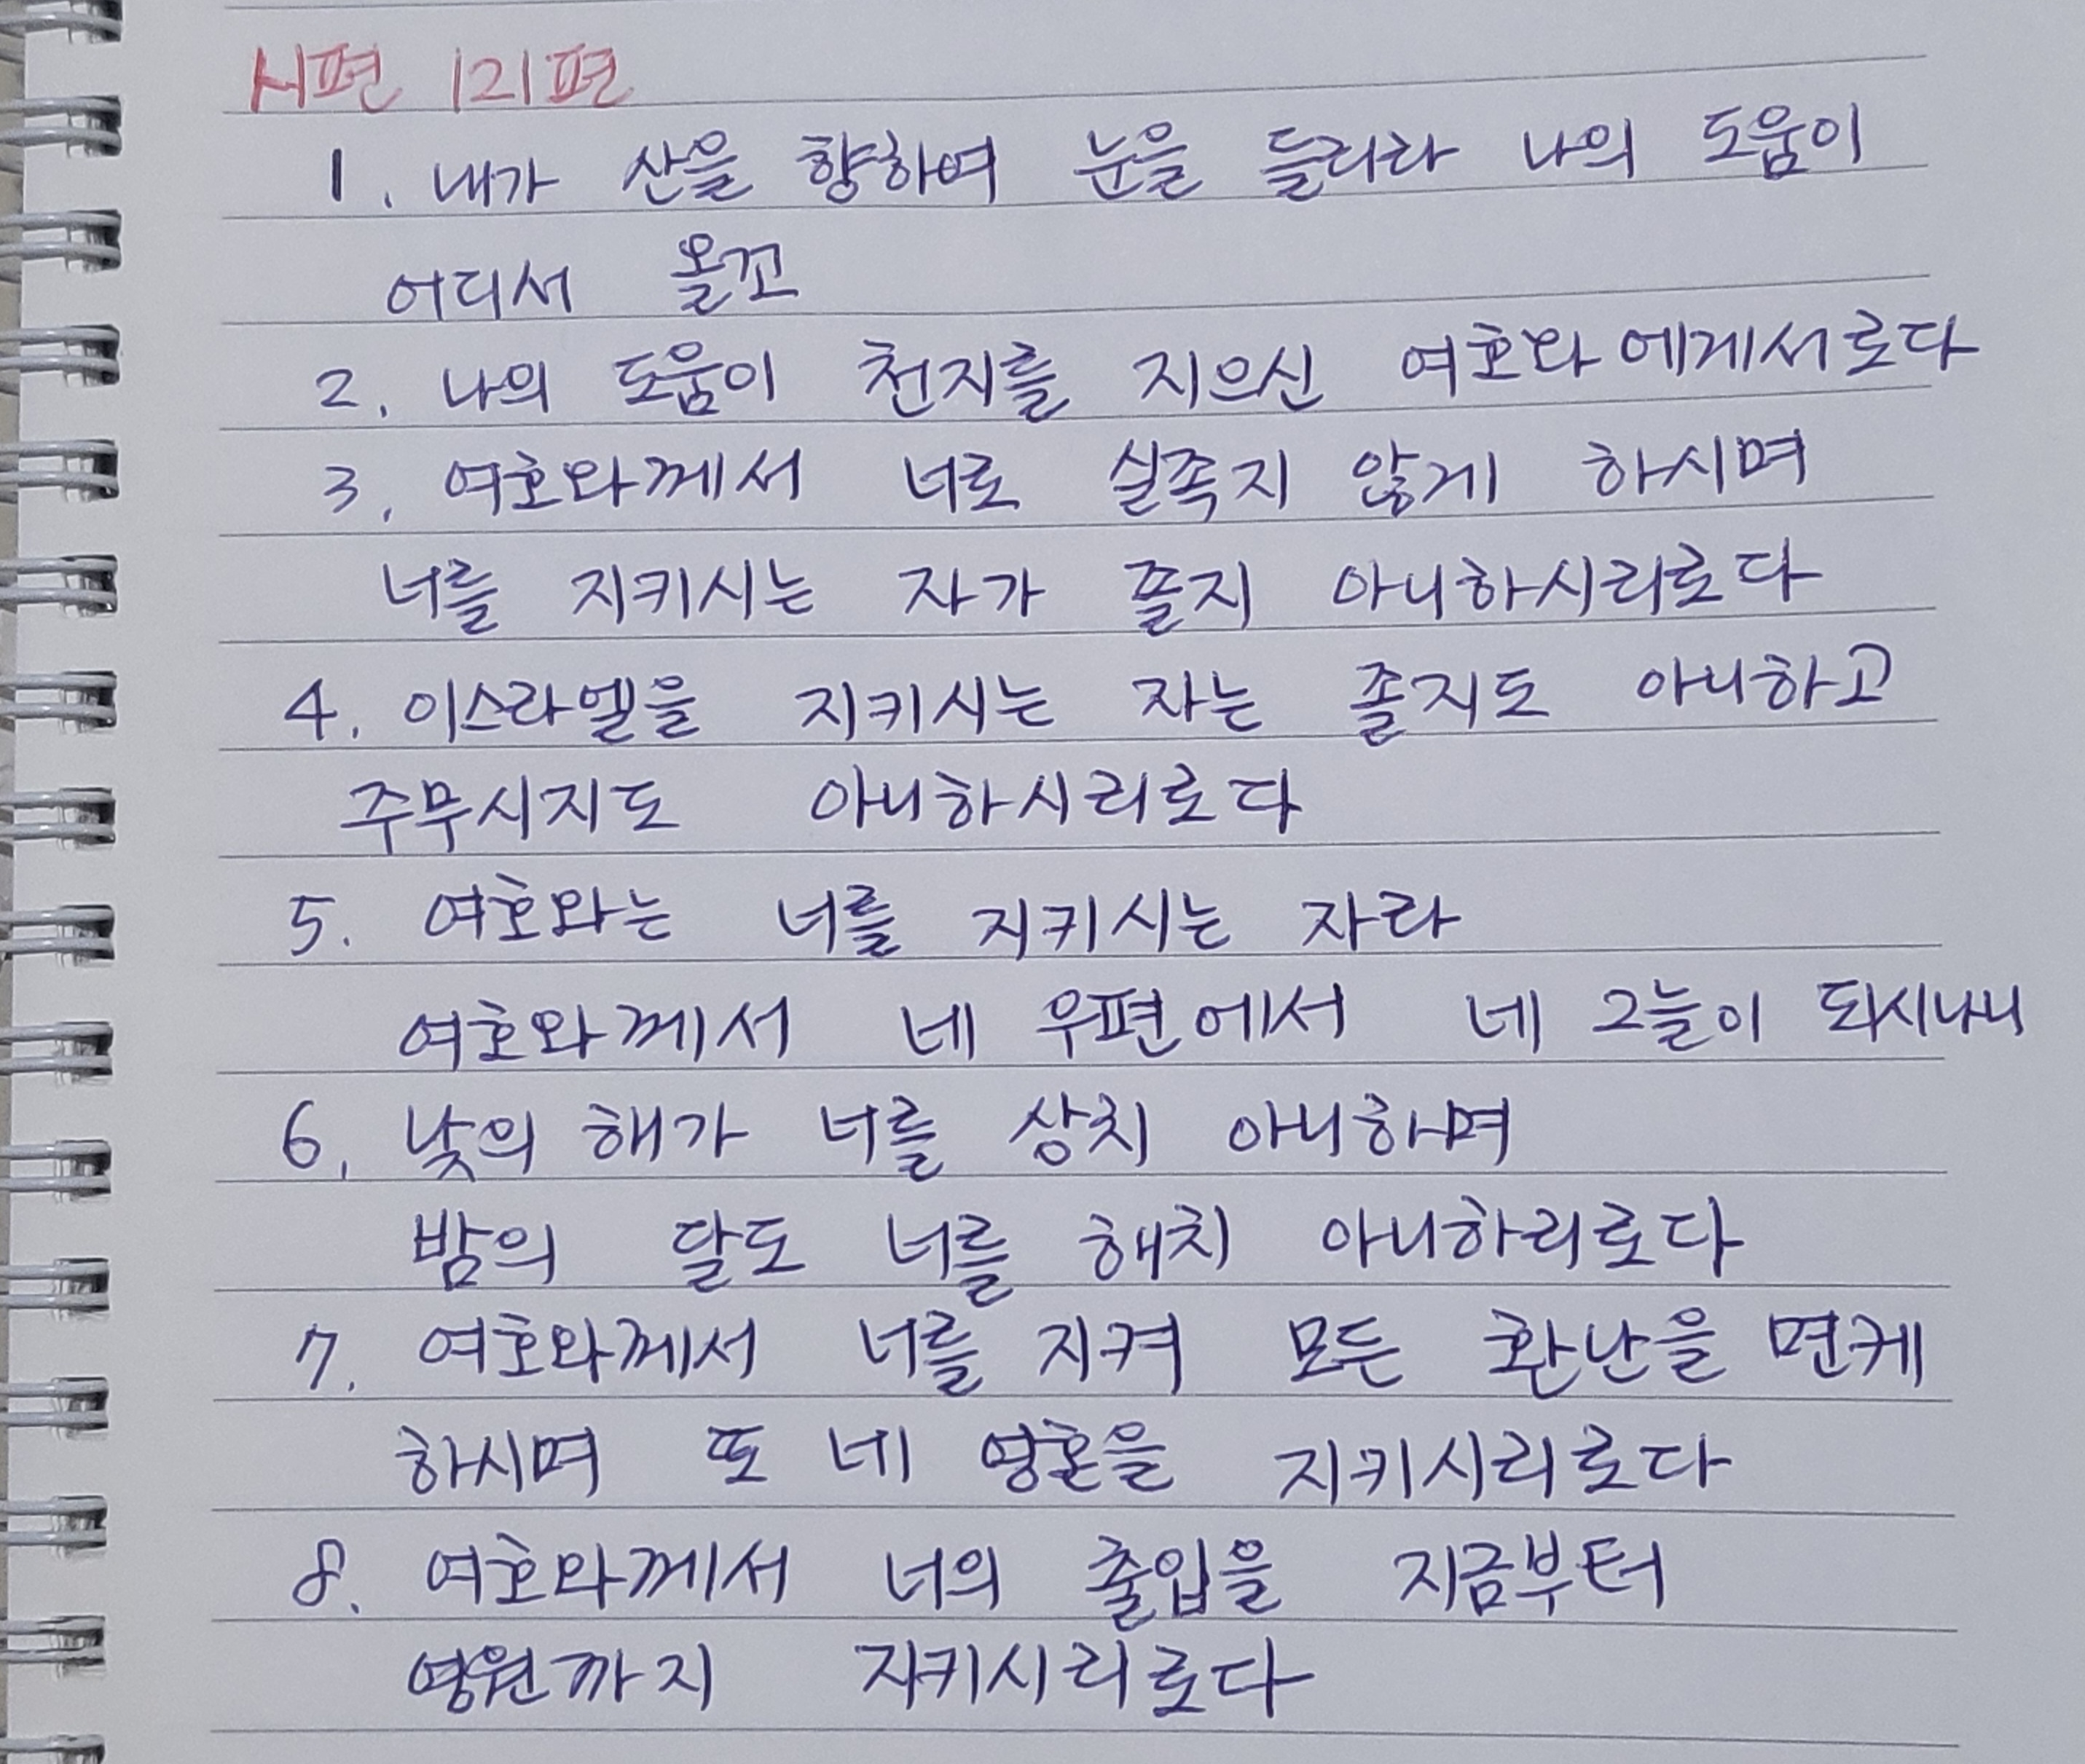 시편 121편
1. 내가 산을 향하여 눈을 들리라 나의 도움이
어디서 올꼬
2. 나의 도움이 천지를 지으신 여호와에게서로다
3. 여호와께서 너로 실족지 않게 하시며
너를 지키시는 자가 졸지 아니하시리로다
4. 이스라엘을 지키시는 자는 졸지도 아니하고
주무시지도 아니하시리로다
5. 여호와는 너를 지키시는 자라
여호와께서 네 우편에서 네 그늘이 되시나니
6. 낮의 해가 너를 상치 아니하며
밤의 달도 너를 해치 아니하리로다
7. 여호와께서 너를 지켜 모든 환난을 면케
하시며 또 네 영혼을 지키시리로다
8. 여호와께서 너의 출입을 지금부터
영원까지 지키시리로다